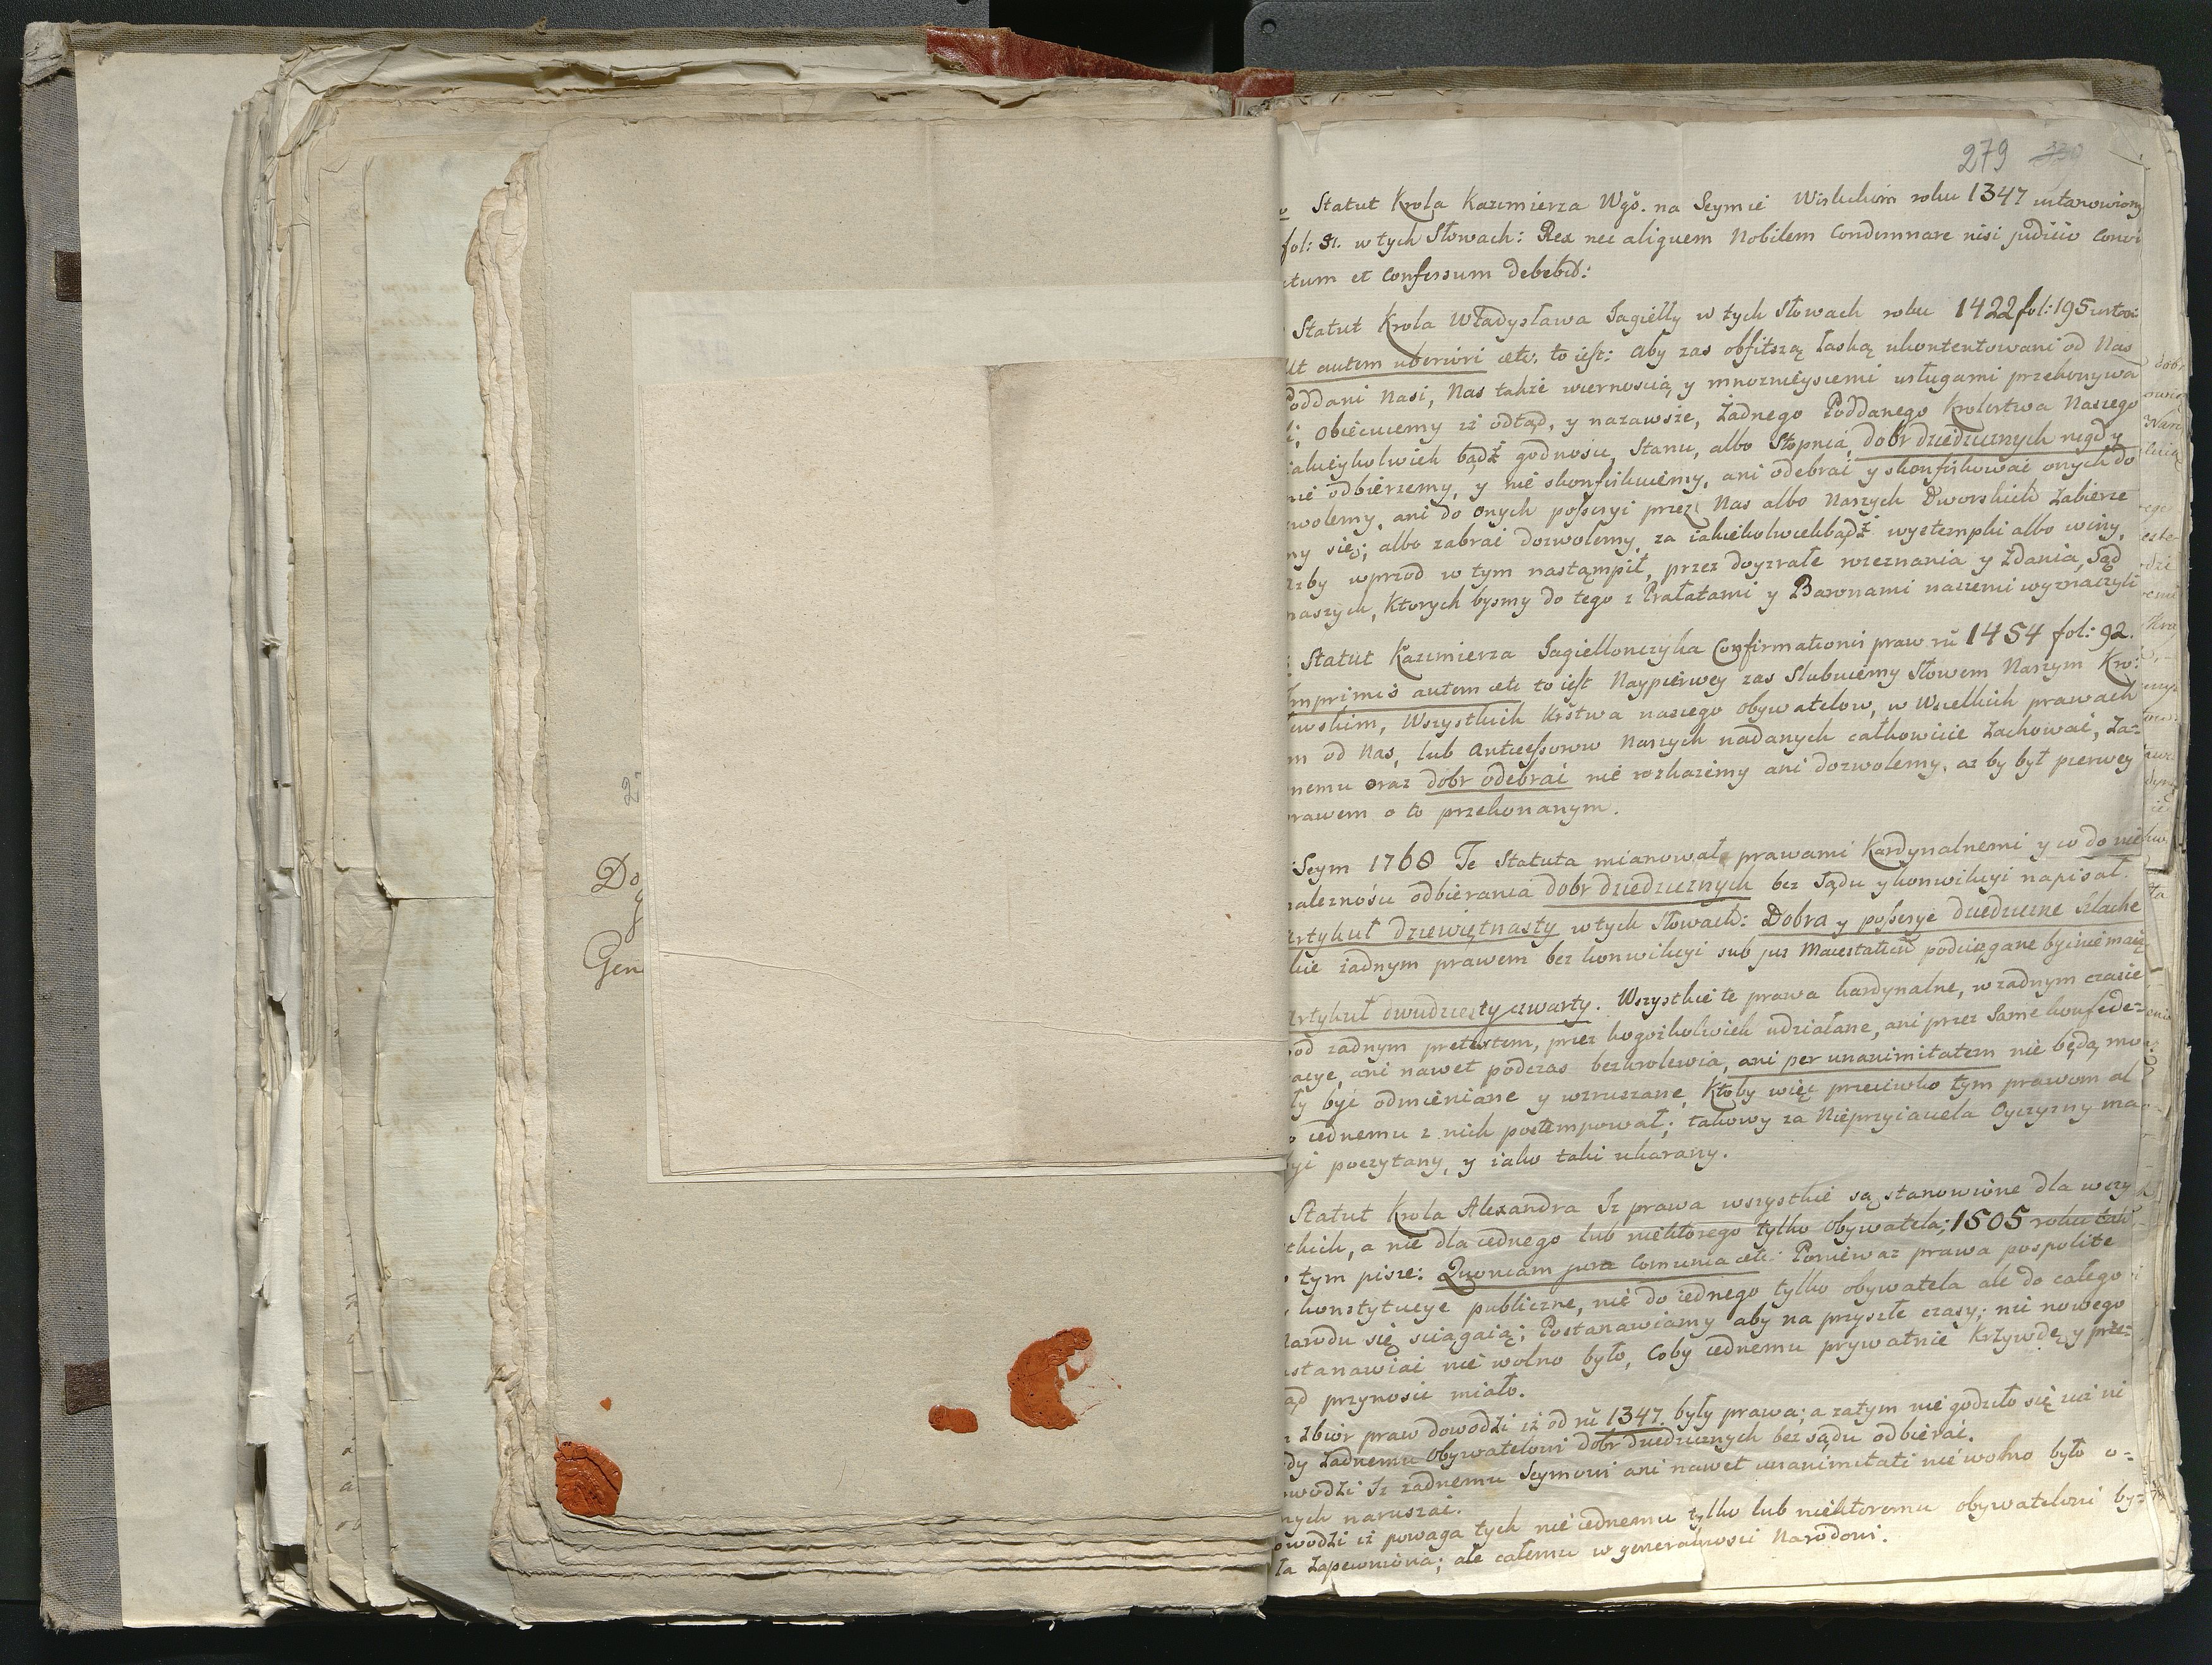 279
Statut Krola Kazimierza Wgo. na Seymie Wislickim roku 1347 ustanowiony
fol: 31. w tych Słowach: Rex nec aliquem Nobilem Condemnare nisi judicio convi
ctum et Confessum debebit:
Statut Krola Władysława Jagiełły w tych Słowach roku 1422 fol: 195
Ut autem uberiori etc. to iest: Aby zas obfitszą łaską ukontentowani od Nas
Poddani Nasi, Nas takze wiernoscią, y mnozneyszemi usługami przekonywa
li; Obiecuiemy iz odtąd, y nazawsze, Żadnego Poddanego Krolestwa Naszego
iakieykolwiek bądź godnosci, Stanu, albo Stopnia, dobr dziedzicznych nigdy
nie odbierzemy, y nie skonfiskuiemy, ani odebrać y skonfiskować onych do
zwolemy, ani do onych possesyi przez Nas albo Naszych Dworskich zabierze
my się; albo zabrać dozwolemy, za iakiekolwiekbądź wystempki albo winy,
azby wprzod w tym nastąmpił, przez doyrzałe rozeznania y Zdania, Sąd
naszych, Ktorych bysmy do tego z Prałatami y Baronami naszemi wyznaczyli
Statut Kazimierza Jagiellonczyka Confirmationis praw ru 1454 fol: 92.
Imprimis autem etc to iest Naypierwey zas Slubuiemy Słowem Naszym Kro:
lewskim, Wszystkich Krstwa naszego obywatelow, w Wszelkich prawach
im od Nas, lub Antecessorow Naszych nadanych całkowicie Zachować, Ża=
dnemu oraz dobr odebrać nie rozkazemy ani dozwolemy, az by był pierwey
prawem o to przekonanym.
Seym 1768 Te Statuta mianował prawami Kardynalnemi y w do nie
należnosci odbierania dobr dziedzicznych bez Sądu y konwikcyi napisał.
Artykuł dziewiętnasty w tych Słowach: Dobra y possesye dziedziczne szlache
ckie żadnym prawem bez konwikcyi sub jus Maiestaticum podciągane być nie maią
Artykuł dwudziesty czwarty. Wszystkie te prawa kardynalne, w zadnym czasie
pod zadnym pretextem, przez kogożkolwiek udziałane, ani przez Same konfede=
racye, ani nawet podczas bezkrolewia, ani per unanimitatem nie będą mo
gły być odmieniane y wzruszane, Ktoby więc przeciwko tym prawom al
bo iednemu z nich postempował; takowy za Nieprzyiaciela Oyczyzny ma
być poczytany, y iako taki ukarany.
Statut Krola Alexandra Iz prawa wszystkie są stanowione dla wszy
stkich, a nie dla iednego lub niektorego tylko Obywatela; 1505 roku tak
o tym pisze: Quoniam jura Comunia etc: Poniewaz prawa pospolite
y konstytucye publiczne, nie do iednego tylko obywatela ale do całego
Narodu się sciągaią; Postanawiamy aby na przyszłe czasy; nic nowego
ustanawiać nie wolno było, Coby iednemu prywatnie Krzywdę y prze=
sąd przynosić miało.
Zbior praw dowodzi iz od ru 1347. były prawa; a zatym nie godziło się
gdy Żadnemu Obywatelowi dobr dziedzicznych bez sądu odbierać.
Dowodzi Iz zadnemu Seymowi ani nawet unanimitati nie wolno było o=
nych naruszać.
Dowodzi iz powaga tych nie iednemu tylko lub niektoremu obywatelowi by=
ła Zapewniona; ale całemu w generalnosci Narodowi.